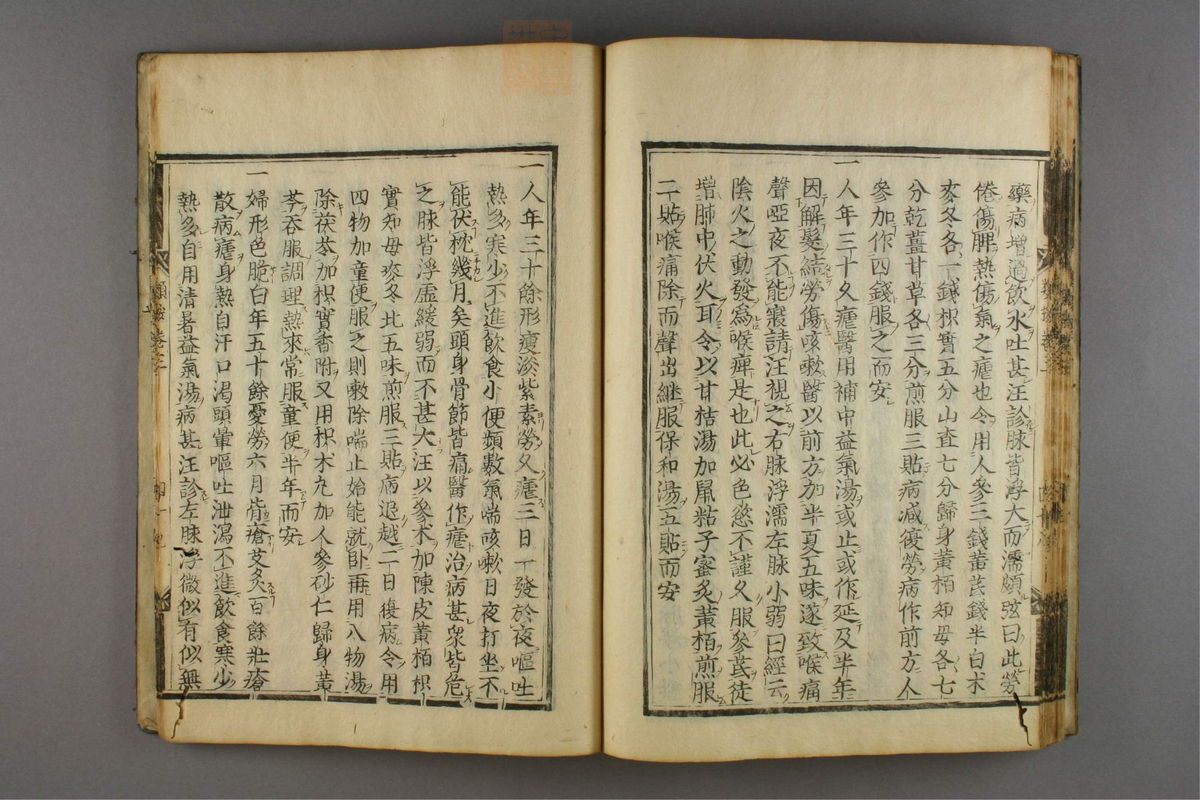 藥病增過飲水吐甚汪診脉皆浮大而濡頗弦曰此勞
倦傷脾熱傷氣之瘧也今用人參三錢黃芪錢半白朮
麥冬各一錢枳實五分山查七分歸身黃栢知母各七
分乾薑甘草各三分煎服三貼病減復勞病作前方人
參加作四錢服之而安
一人年三十久瘧醫用補中益氣湯或止或作延及半年
因解髮結勞傷咳嗽醫以前方加半夏五味遂致喉痛
聲啞夜不能寢請汪視之右脉浮濡左脉小弱曰經云
陰火之動發爲喉痺是也此必色慾不謹久服參芪徒
增肺中伏火耳令以甘桔湯加鼠粘子蜜炙黃栢煎服
二貼喉痛除而聲出繼服保和湯五貼而安
一人年三十餘形瘦淡紫素勞久瘧三日一發於夜嘔吐
熱多寒少不進飲食小便頻數氣喘咳嗽日夜打坐不
能伏枕幾月矣頭身骨節皆痛醫作瘧治病甚衆皆危
之脉皆浮虛緩弱而不甚大汪以參朮加陳皮黃栢枳
實知母麥冬北五味煎服三貼病退越二日復病令用
四物加童便服之則嗽除喘止始能就卧再用八物湯
除茯苓加枳實香附又用枳朮丸加人參砂仁歸身黃
芩吞服調理熱來常服童便半年而安
一婦形色脆白年五十餘憂勞六月背瘡艾灸百餘壯瘡
散病瘧身熱自汗口渴頭暈嘔吐泄瀉不進飲食寒少
熱多自用清暑益氣湯病甚汪診左脉浮微似有似無